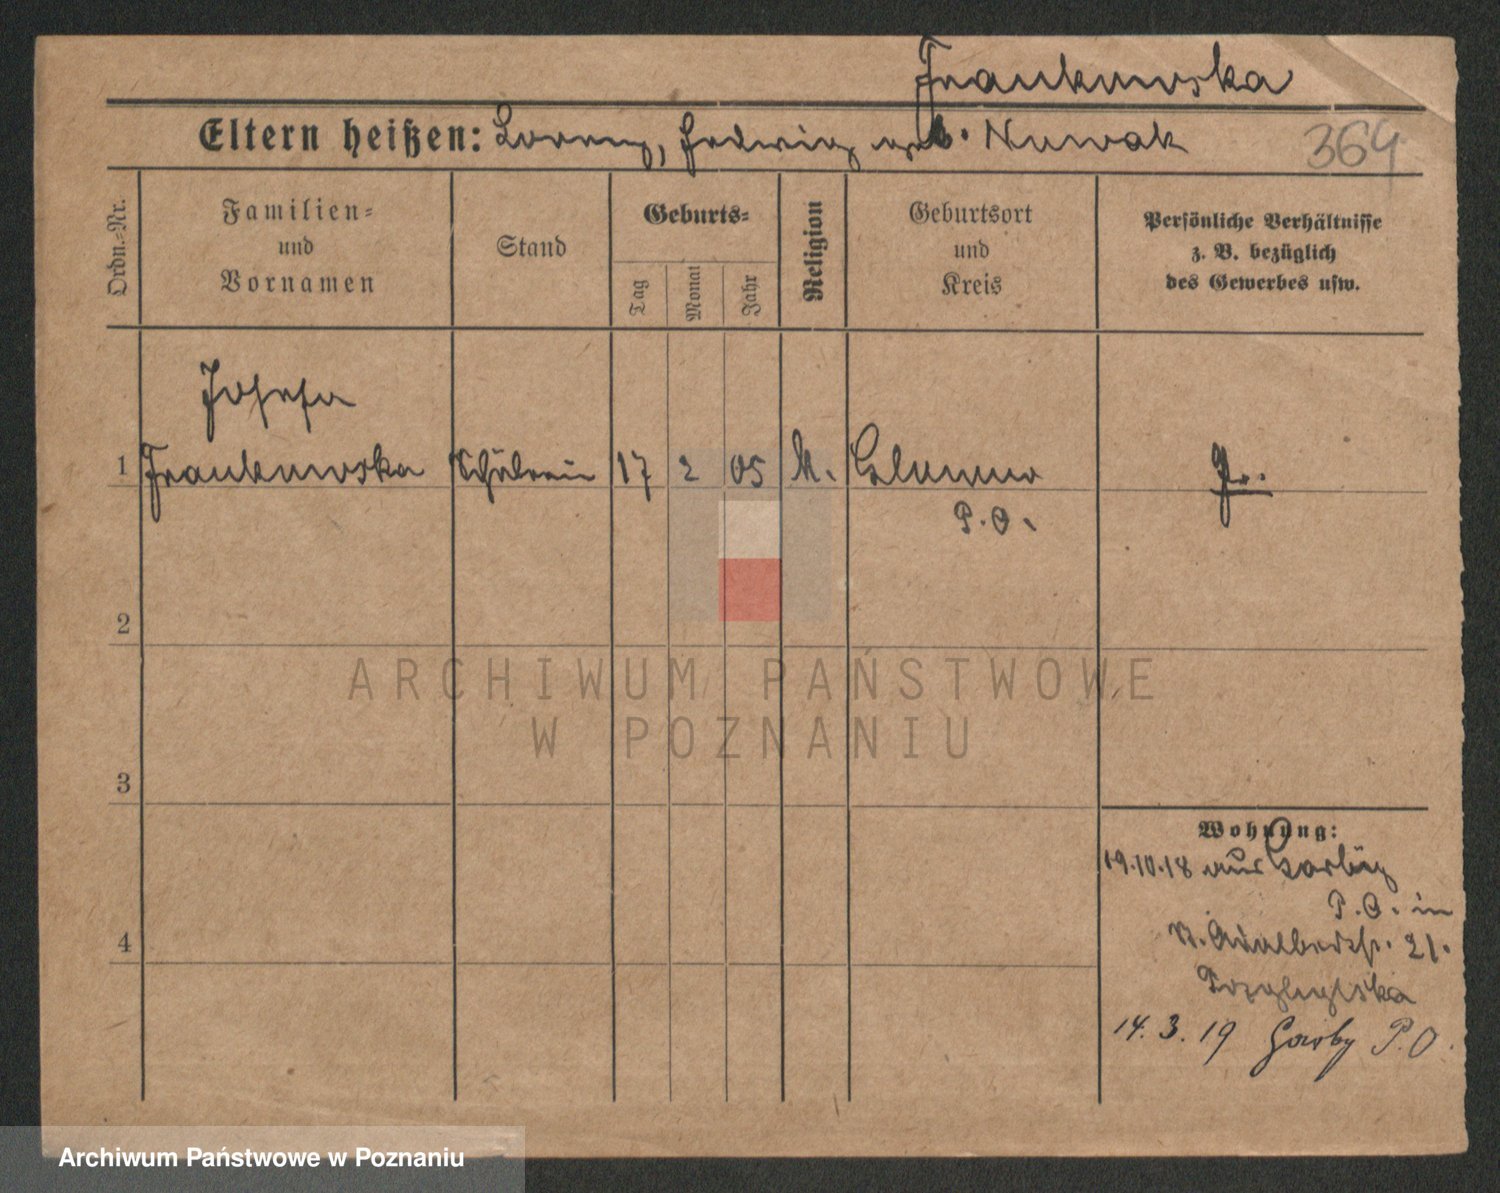 Frankowska
Eltern heißen: Lorenz, Hedwig geb. Nowak
364
Ordn.-Nr.
Familien-
und
Vornamen
Stand
Geburts-
Tag
Monat
Jahr
Religion
Geburtsort
und
Kreis
Persönliche Verhältnisse
z. B. bezüglich
des Gewerbes usw.
Josefa
1 Frankowska Schülerin 17 2 05 k. Glowno Pr.
P. O.
2
3
4
Wohnung:
19.10.18 aus
P. O. in
St. Adalbertstr. 21.
14. 3. 19 Garby P. O.
ARCHIWUM PAŃSTWOWE
W POZNANIU
Archiwum Państwowe w Poznaniu